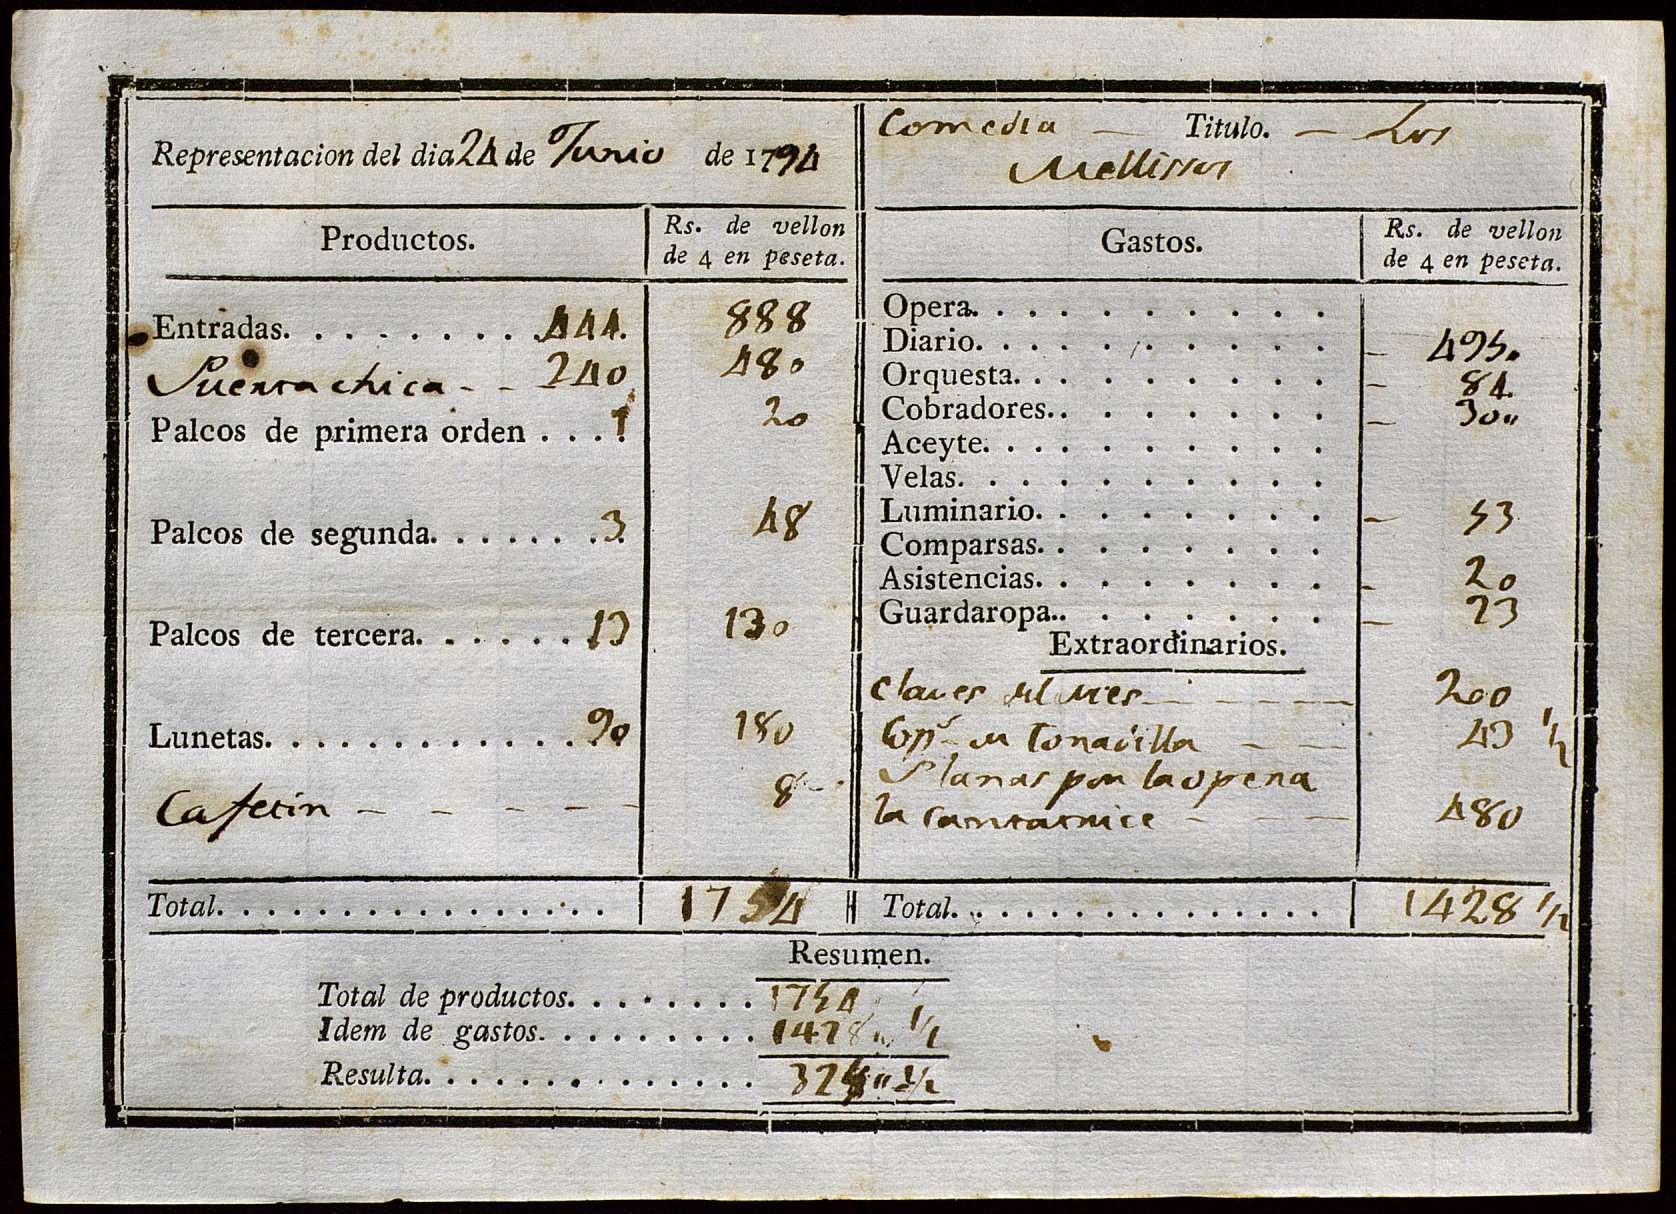 Representacion del dia 24 de Junio de 1794
Comedia — Titulo. — Los
Mellissos
Productos.
Rs. de vellon
de 4 en peseta.
Entradas. . . . . . . . . 444. 888
Puerta chica - - 240 480
Palcos de primera orden . . . 1 20
Palcos de segunda. . . . . . . 3 48
Palcos de tercera. . . . . . 13 130
Lunetas. . . . . . . . . . . . . 90 180
Cafetin — — — — — 8
Total. . . . . . . . . . . . . . . 1754
Gastos.
Rs. de vellon
de 4 en peseta.
Opera. . . . . . . . . .
Diario. . . . . . . . . . — 495.
Orquesta. . . . . . . . . — 84.
Cobradores. . . . . . . . — 30"
Aceyte. . . . . . . . . .
Velas. . . . . . . . . . .
Luminario. . . . . . . . — 53
Comparsas. . . . . . . .
Asistencias. . . . . . . . - 20
Guardaropa. . . . . . . . — 23
Extraordinarios.
Claves del mes — - - - — 200
de tonadilla — — 43 1/2
por la opera
la cantatrice — — — 480
Total. . . . . . . . . . . . . . . 1428 1/2
Resumen.
Total de productos. . . . . . . . 1754
Idem de gastos. . . . . . . . . 1428" 1/2
Resulta. . . . . . . . . . . . . . 325" 1/2